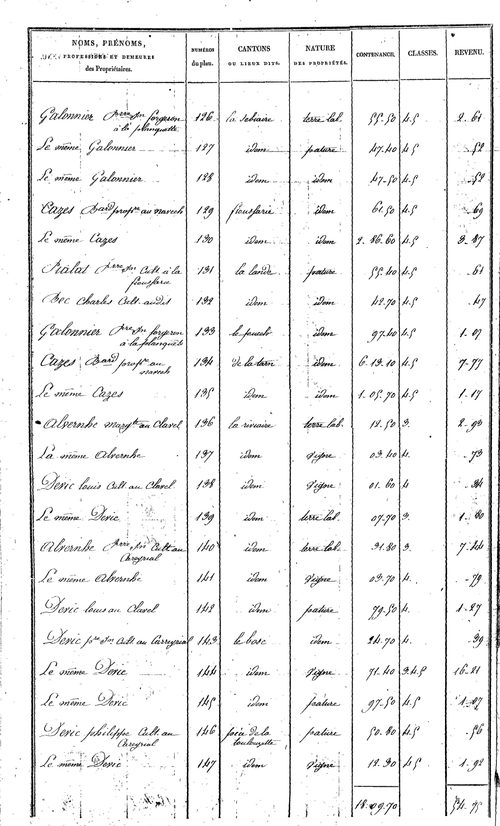 NOMS, PRÉNOMS, PROFESSIONS ET DEMEURES des Propriétaires. | NUMÉROS du plan. | CANTONS OU LIEUX DITS. | NATURE DES PROPRIÉTÉS. | CONTENANCE. | CLASSES. | REVENU.
Galonnier Jrre Jn forgeron | 126 | la sebiaire | terre lab. | 55.50 | 4.5 | 2.61
à la planquette
Le même Galonnier | 127 | idem | pature | 47.40 | 4.5 | .52
Le même Galonnier | 128 | idem | idem | 47.50 | 4.5 | .52
Cazes Bard profre au navech | 129 | fiousarie | idem | 61.50 | 4.5 | .69
Le même Cazes | 130 | idem | idem | 2.86.60 | 4.5 | 3.87
Jrre Jn Cult à la | 131 | la lande | pature | 55.40 | 4.5 | .61
fiousarie
Bec Charles Cult audit | 132 | idem | idem | 42.70 | 4.5 | .47
Galonnier Jrre Jn forgeron | 133 | idem | 97.40 | 4.5 | 1.07
à la planquette
Cazes Bard profre au | 134 | de la tarn | idem | 6.13.10 | 4.5 | 7.77
navech
Le même Cazes | 135 | idem | idem | 1.05.70 | 4.5 | 1.17
Alvernhe margte au Clavel | 136 | la riviaire | terre lab. | 12.50 | 3. | 2.93
La même Alvernhe | 137 | idem | vigne | 03.40 | 4. | .73
Deric louis Cult au Clavel | 138 | idem | vigne | 01.60 | 4 | .34
Le même Deric | 139 | idem | terre lab. | 07.70 | 3. | 1.80
Alvernhe Jrre Jn Cult au | 140 | idem | terre lab. | 31.80 | 3. | 7.44
Careyrial
Le même Alvernhe | 141 | idem | vigne | 03.70 | 4. | .79
Deric louis au Clavel | 142 | idem | pature | 79.50 | 4. | 1.27
Deric pre Jn Cult au Carreyrial | 143 | le bosc | idem | 24.70 | 4. | .39
Le même Deric | 144 | idem | vigne | 71.40 | 3.4.5 | 16.21
Le même Deric | 145 | idem | pature | 97.50 | 4.5 | 1.07
Deric philippe Cult au | 146 | de la | pature | 50.80 | 4.5 | .56
Careyrial | toulouzette
Le même Deric | 147 | idem | vigne | 12.30 | 4.5 | 1.92
18.09.70 | 54.75